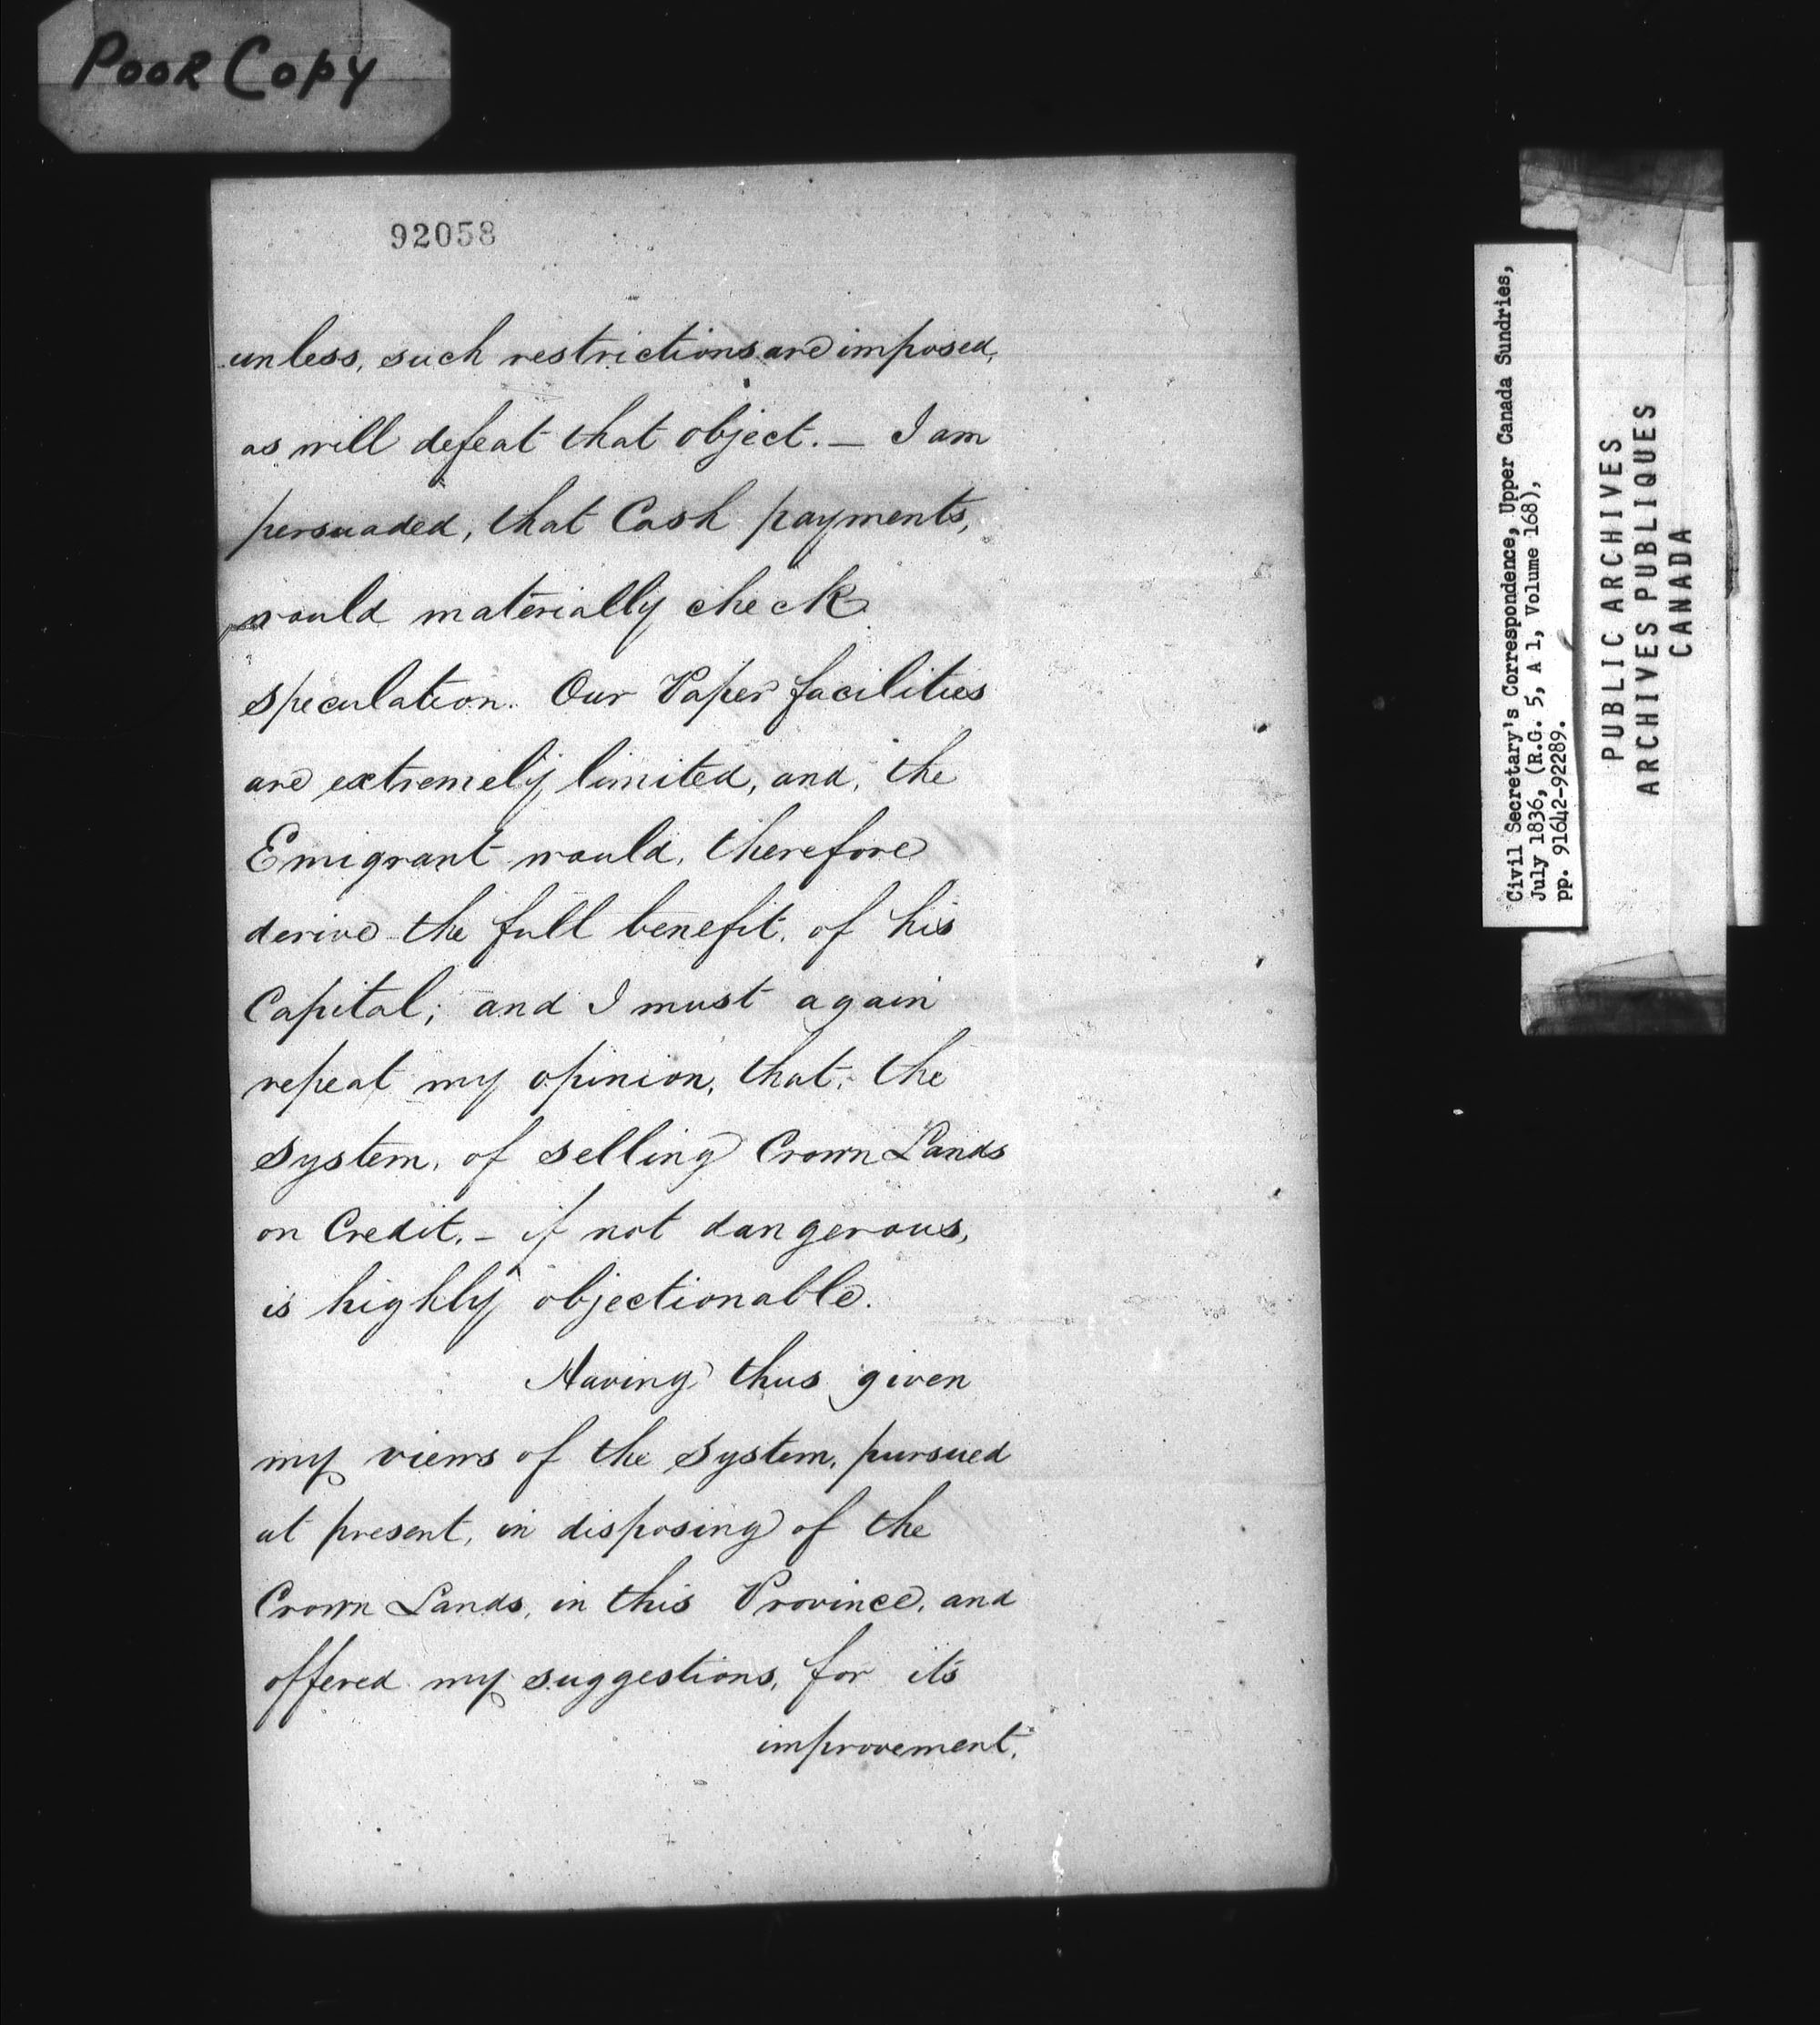 Poor Copy
92058
unless, such restrictions are imposed,
as will defeat that object. — I am
persuaded, that Cash payments,
would materially check
speculation. Our Paper facilities
are extremely limited, and, the
Emigrant would, therefore
derive the full benefit, of his
Capital; and I must again
repeat my opinion, that, the
system, of selling Crown Lands
on Credit, – if not dangerous,
is highly objectionable.
Having thus given
my views of the System, pursued
at present, in disposing of the
Crown Lands, in this Province, and
offered my suggestions, for it's
improvement,
Civil Secretary's Correspondence, Upper Canada Sundries,
July 1836, (R.G. 5, A 1, Volume 168),
pp. 91642-92289.
PUBLIC ARCHIVES
ARCHIVES PUBLIQUES
CANADA